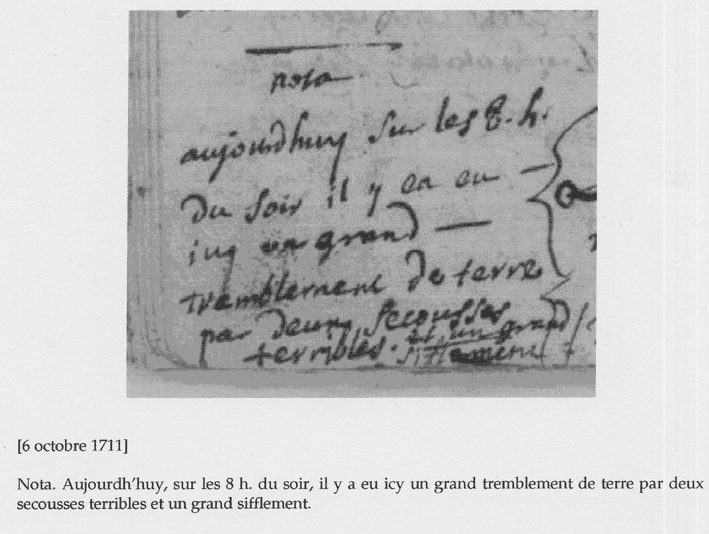 nota
aujourdhuy sur les 8. h.
du soir il y ea eu —
icy un grand —
tremblement de terre
par deux secousses
terribles. et un grand
sifflement
[6 octobre 1711]
Nota. Aujourdh'huy, sur les 8 h. du soir, il y a eu icy un grand tremblement de terre par deux
secousses terribles et un grand sifflement.